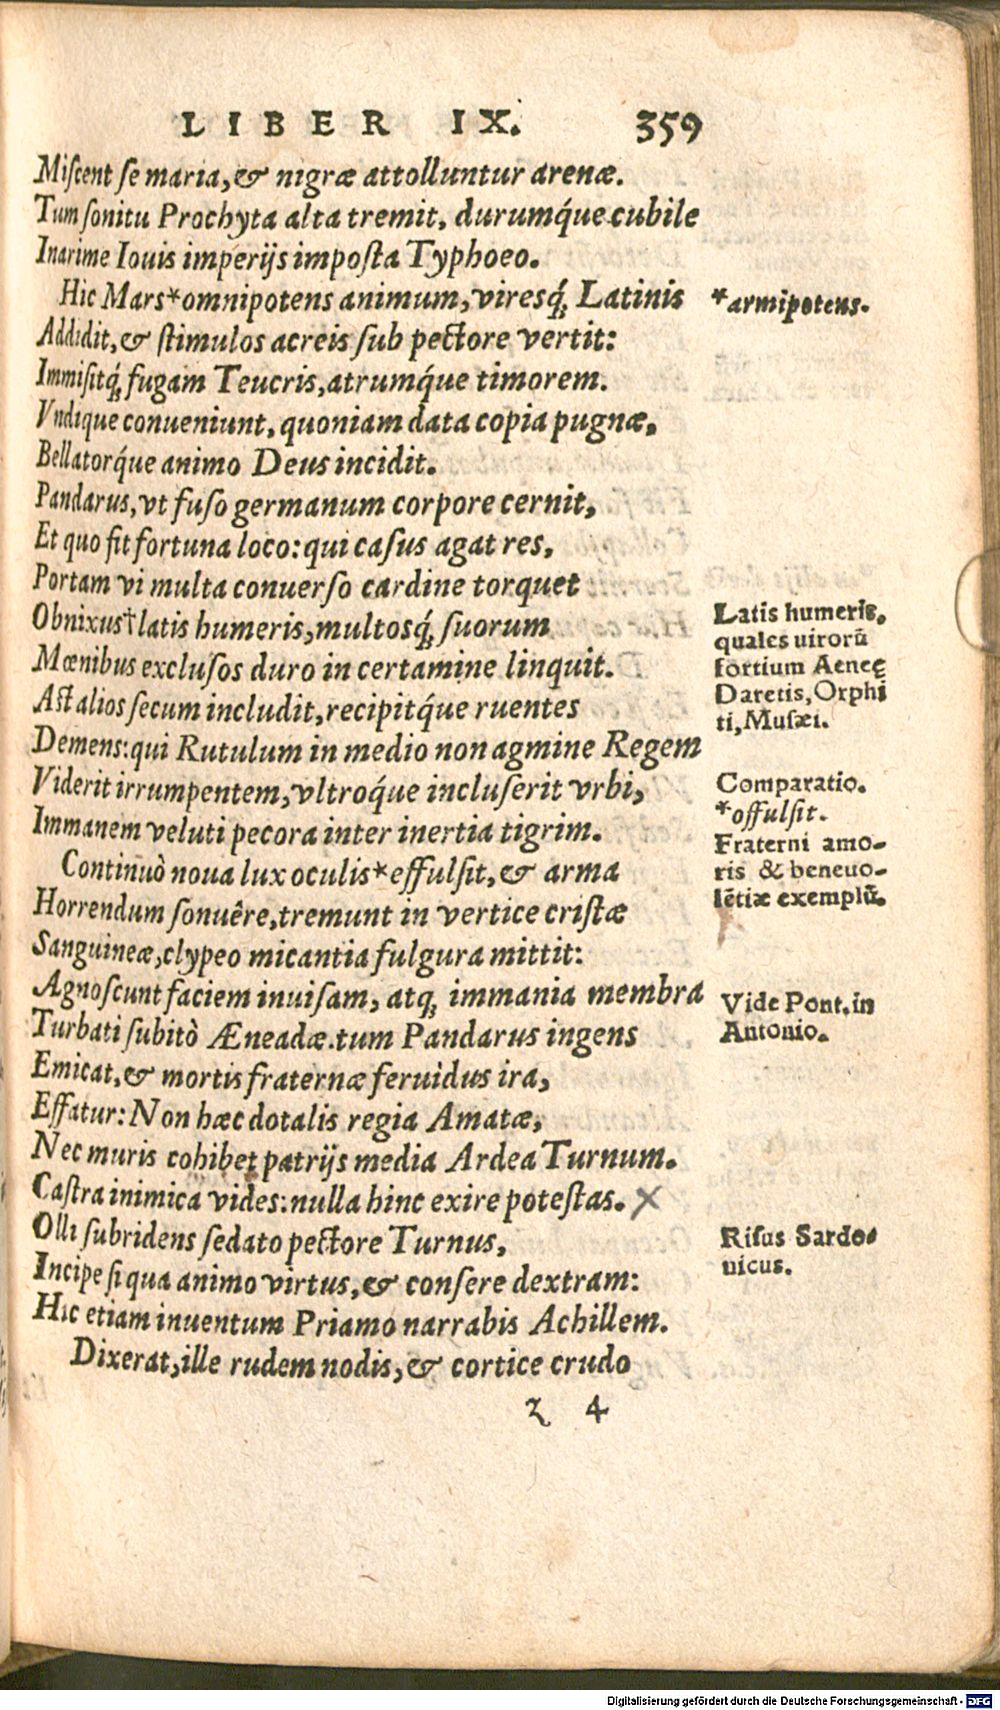 LIBER IX. 359
Miscent se maria, & nigræ attolluntur arenæ.
Tum sonitu Prochyta alta tremit, durumq́ue cubile
Inarime Iouis imperijs imposta Typhoeo.
Hic Mars*omnipotens animum, viresq́; Latinis
*armipotens.
Addidit, & stimulos acreis sub pectore vertit:
Immisitq́; fugam Teucris, atrumq́ue timorem.
Vndique conueniunt, quoniam data copia pugnæ,
Bellatorq́ue animo Deus incidit.
Pandarus, vt fuso germanum corpore cernit,
Et quo sit fortuna loco: qui casus agat res,
Portam vi multa conuerso cardine torquet
Obnixus†latis humeris, multosq́; suorum
Mœnibus exclusos duro in certamine linquit.
Ast alios secum includit, recipitq́ue ruentes
Latis humeris,
quales uirorũ
fortium Aeneę
Daretis, Orphi
ti, Musæi.
Demens: qui Rutulum in medio non agmine Regem
Viderit irrumpentem, vltroq́ue incluserit vrbi,
Immanem veluti pecora inter inertia tigrim.
Comparatio.
Continuò noua lux oculis*effulsit, & arma
*offulsit.
Horrendum sonuêre, tremunt in vertice cristæ
Sanguineæ, clypeo micantia fulgura mittit:
Fraterni amo-
ris & beneuo-
lẽtiæ exemplũ.
Agnoscunt faciem inuisam, atq; immania membra
Turbati subitò Æneadæ. tum Pandarus ingens
Emicat, & mortis fraternæ feruidus ira,
Vide Pont. in
Antonio.
Effatur: Non hæc dotalis regia Amatæ,
Nec muris cohibet patrijs media Ardea Turnum.
Castra inimica vides: nulla hinc exire potestas. X
Olli subridens sedato pectore Turnus,
Incipe si qua animo virtus, & consere dextram:
Risus Sardo-
nicus.
Hic etiam inuentum Priamo narrabis Achillem.
Dixerat, ille rudem nodis, & cortice crudo
z 4
Digitalisierung gefördert durch die Deutsche Forschungsgemeinschaft - DFG